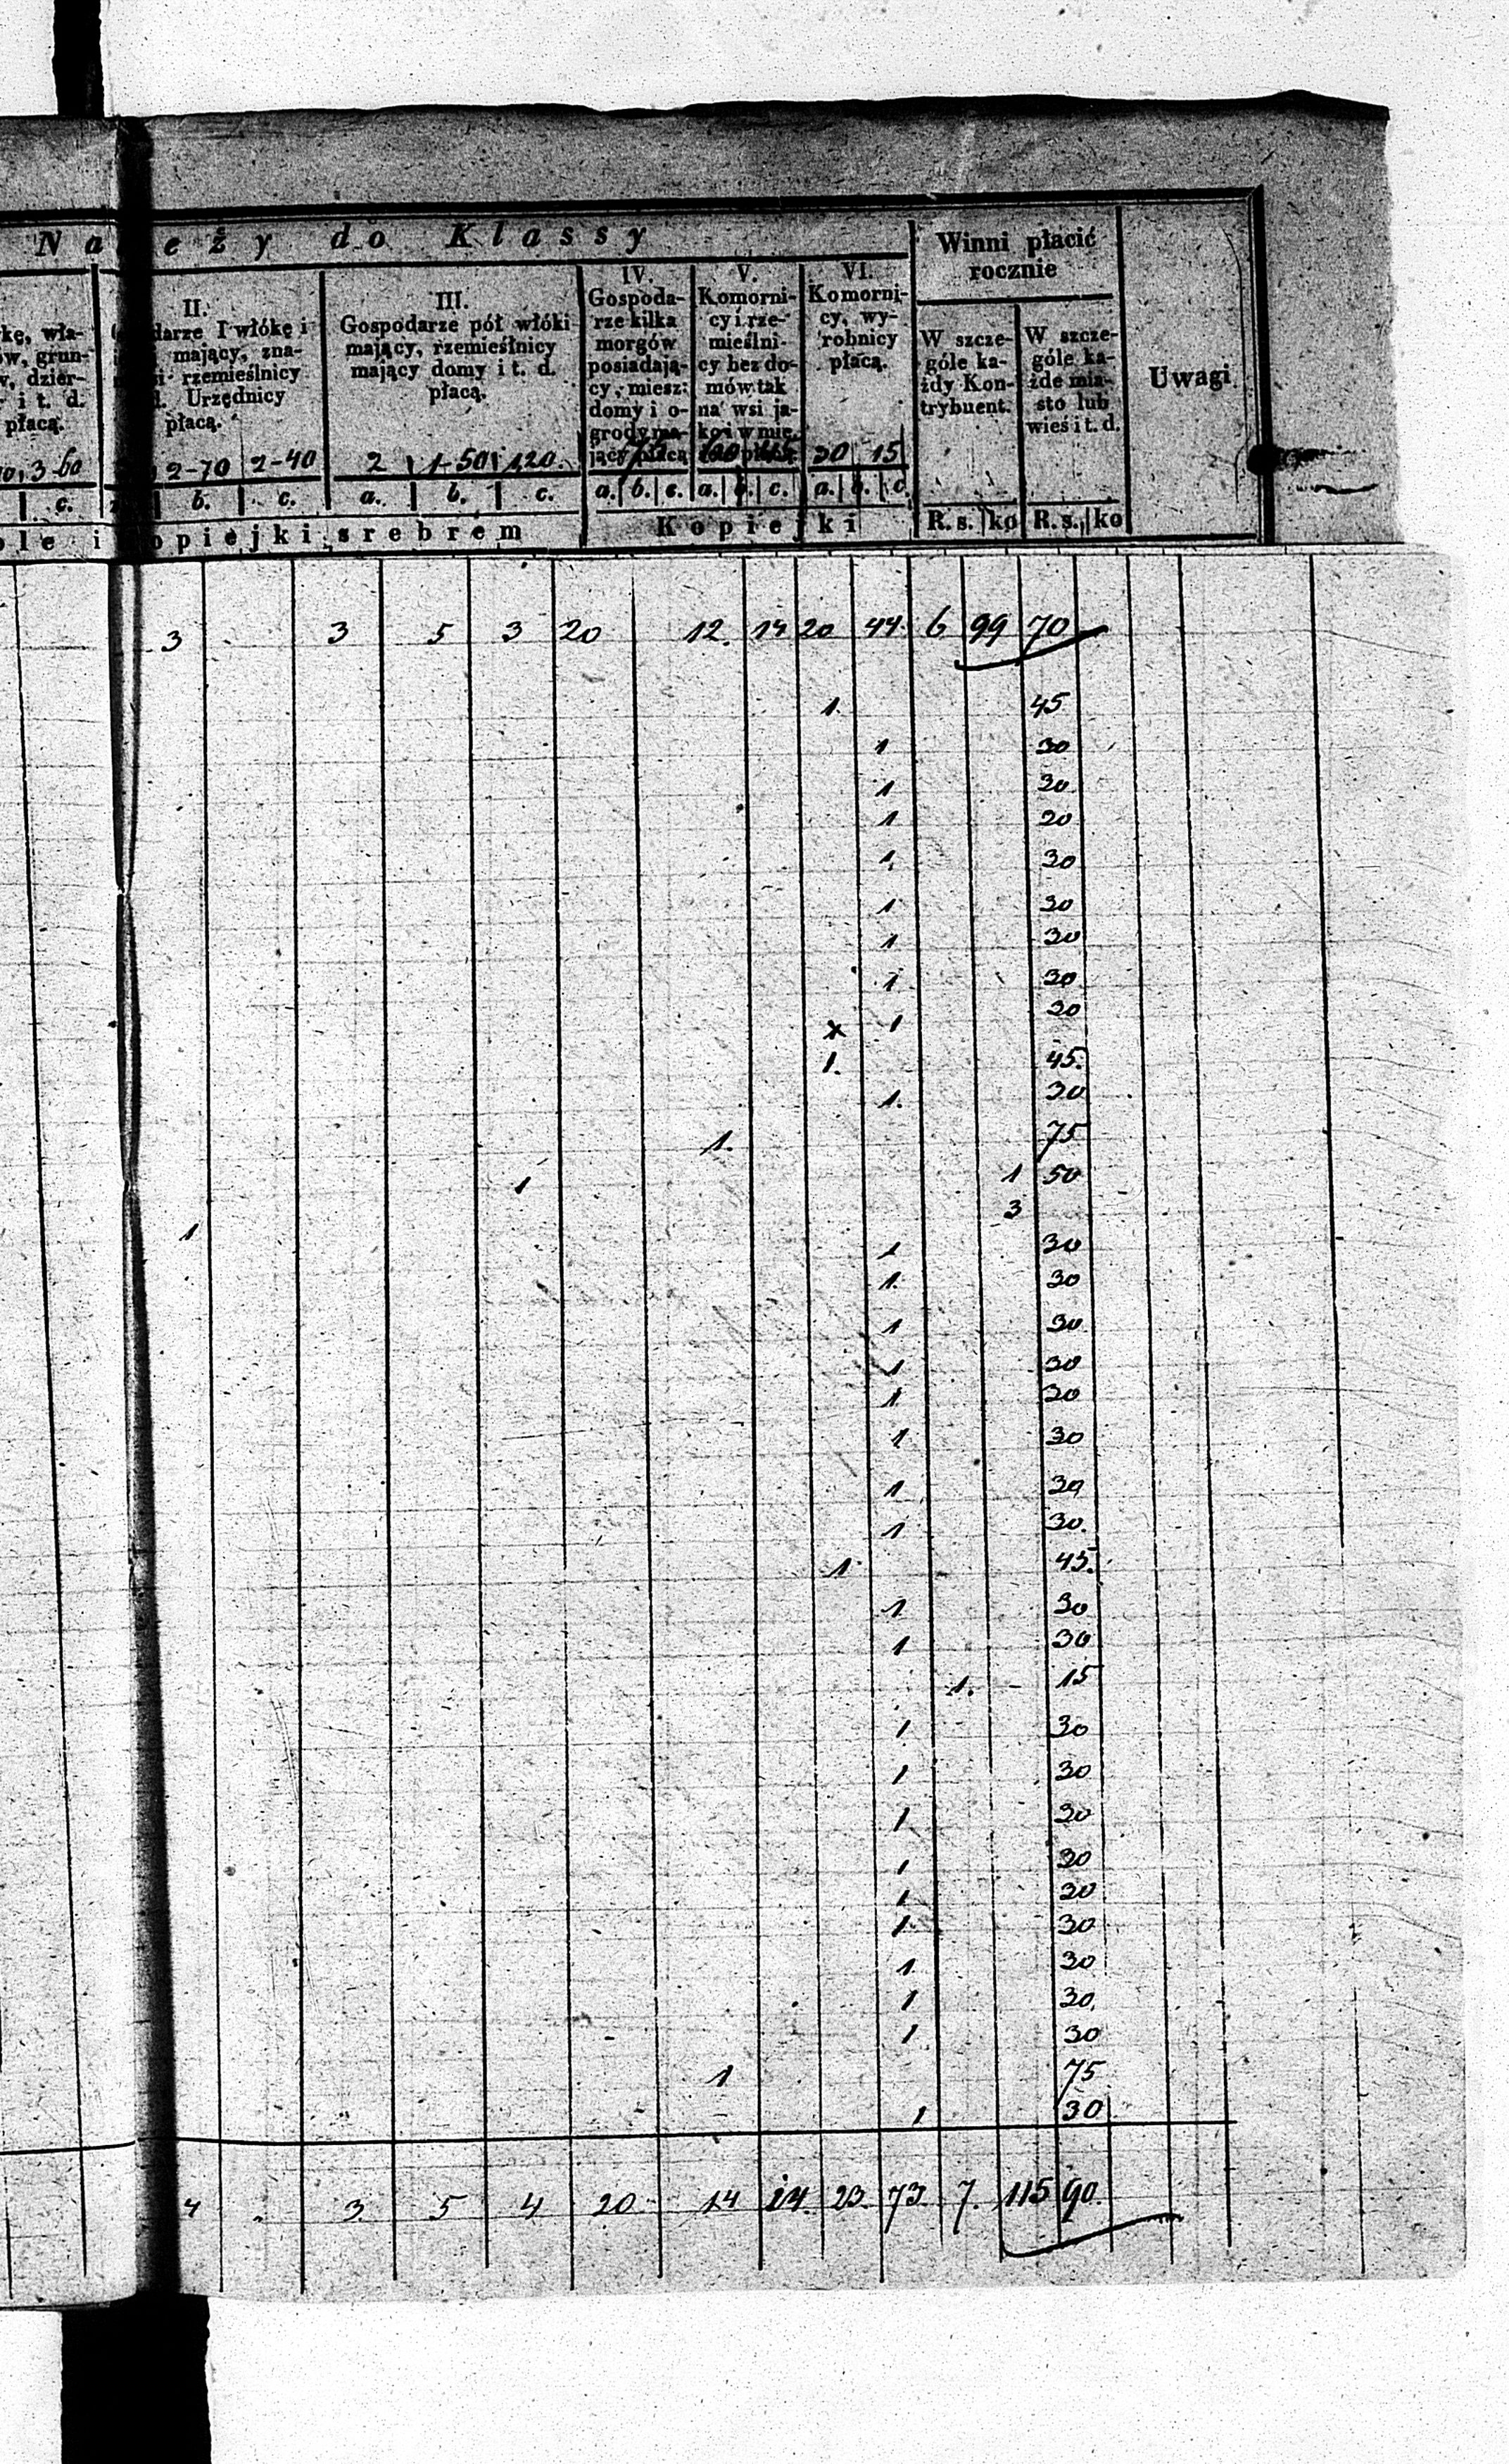 Na eży do Klassy
Winni płacić
rocznie
Uwagi
kę, wła-
ów, grun-
w, dzier-
i t. d.
płacą.
3-60
c.
II.
darze I włókę i
mający, zna-
si rzemieślnicy
Urzędnicy
płacą.
2-70 2-40
b. c.
III.
Gospodarze pół włóki
mający, rzemieślnicy
mający domy i t. d.
płacą.
2 1-50 120.
a. b. c.
IV.
Gospoda-
rze kilka
morgów
posiadają-
cy, miesz:
domy i o-
grody ma-
jący płacą
a. b. c.
V.
Komorni-
cy i rze-
mieślni-
cy bez do-
mów tak
na wsi ja-
ko i w mie.
a. b. c.
VI.
Komorni-
cy, wy-
robnicy
płacą.
30 15
a. b. c.
W szcze-
góle ka-
żdy Kon-
trybuent.
R. s. ko
W szcze-
góle ka-
żde mia-
sto lub
wieś i t. d.
R. s. ko
ole i opiejki srebrem
Kopiejki
3 3 5 3 20 12. 14 20 44. 6 99 70
1. 45
1 30
1 30
1 30
1 30
1 30
1 30
1 30
x 1 30
1. 45.
1. 30
1. 75
1 1 50
1 3
1 30
1. 30
1 30
1 30
1 30
1 30
1 30
1 30.
1 45.
1 30
1 30
1. - 15
1 30
1 30
1 30
1 30
1 30
1 30
1 30
1 30.
1 30
1 75
1 30
4 . 3 5 4 20 14 14 23. 73. 7. 115 90.